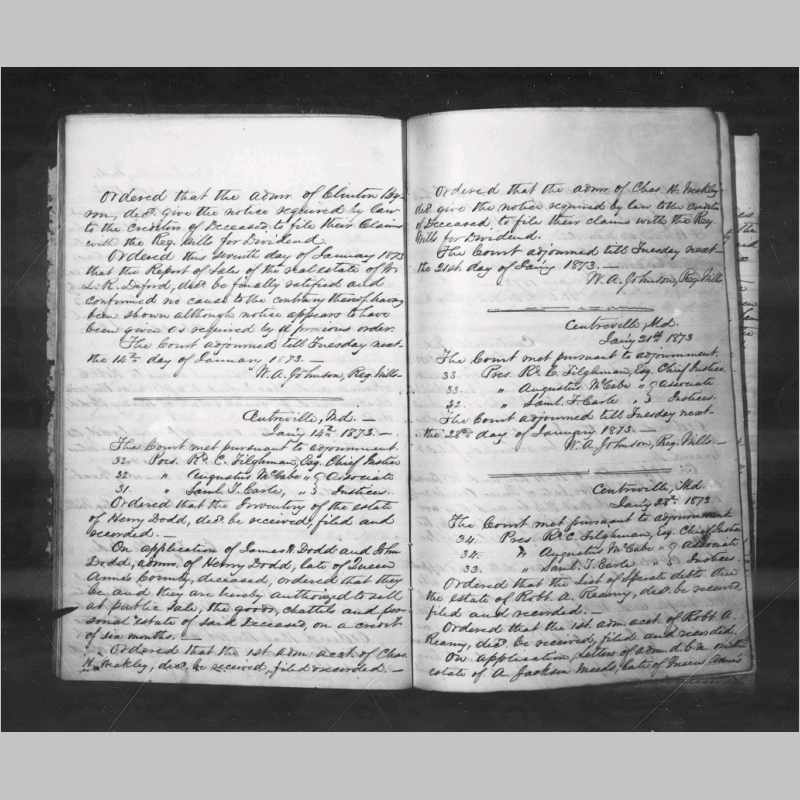 Ordered that the admr. of Clinton
son, decd. give the notice required by law
to the creditors of Deceased, to file their Claims
with the Reg. Wills for Dividend.
Ordered this seventh day of January 1873
that the Report of Sale of the real estate of Wm.
decd. be finally ratified and
confirmed no cause to the contrary thereof having
been shown although notice appears to have
been given as required by a previous order.
The Court adjourned till Tuesday next
the 14th. day of January 1873. —
W. A. Johnson, Reg. Wills
Centreville, Md. —
Jany 14th. 1873. —
The Court met pursuant to adjournment.
32. Pres. Rd. C. Tilghman, Esq. Chief Justice
32. " Augustus McCabe " } Associate
31. " Saml. T. Earle, " } Justices.
Ordered that the Inventory of the estate
of Henry Dodd, decd. be received, filed and
recorded. —
On application of James H. Dodd and John
Dodd, admrs. of Henry Dodd, late of Queen
Anne's County, deceased, ordered that they
be and they are hereby authorized to sell
at public sale, the goods, chattels and per-
sonal estate of said Deceased, on a credit
of six months. —
Ordered that the 1st adm acct. of Chas.
H. decd, be received, filed & recorded. —
Ordered that the admr. of Chas. H.
decd. give the notice required by law to the credits
of Deceased, to file their claims with the Reg
Wills for Dividend.
The Court adjourned till Tuesday next
the 21st. day of Jany 1873. —
W. A. Johnson, Reg. Wills
Centreville, Md.
Jany 21st 1873
The Court met pursuant to adjournment.
33. Pres. Rd. C. Tilghman, Esq. Chief Justice
33. " Augustus McCabe " } Associate
32. " Saml. T. Earle " } Justices.
The Court adjourned till Tuesday next
the 28th. day of January 1873. —
W. A. Johnson, Reg. Wills —
Centreville, Md.
Jany 28th. 1873
The Court met pursuant to adjournment
34. Pres. Rd. C. Tilghman, Esq. Chief Justice
34. " Augustus McCabe " } Associate
33. " Saml. T. Earle " } Justices
Ordered that the List of Sperate debts due
the estate of Robt A. decd, be received
filed and recorded. —
Ordered that the 1st adm acct. of Robt A.
decd. be received, filed and recorded.
On application, Letters of adm. d.b.n. on the
estate of A. Jackson Meeds, late of Queen Anne's